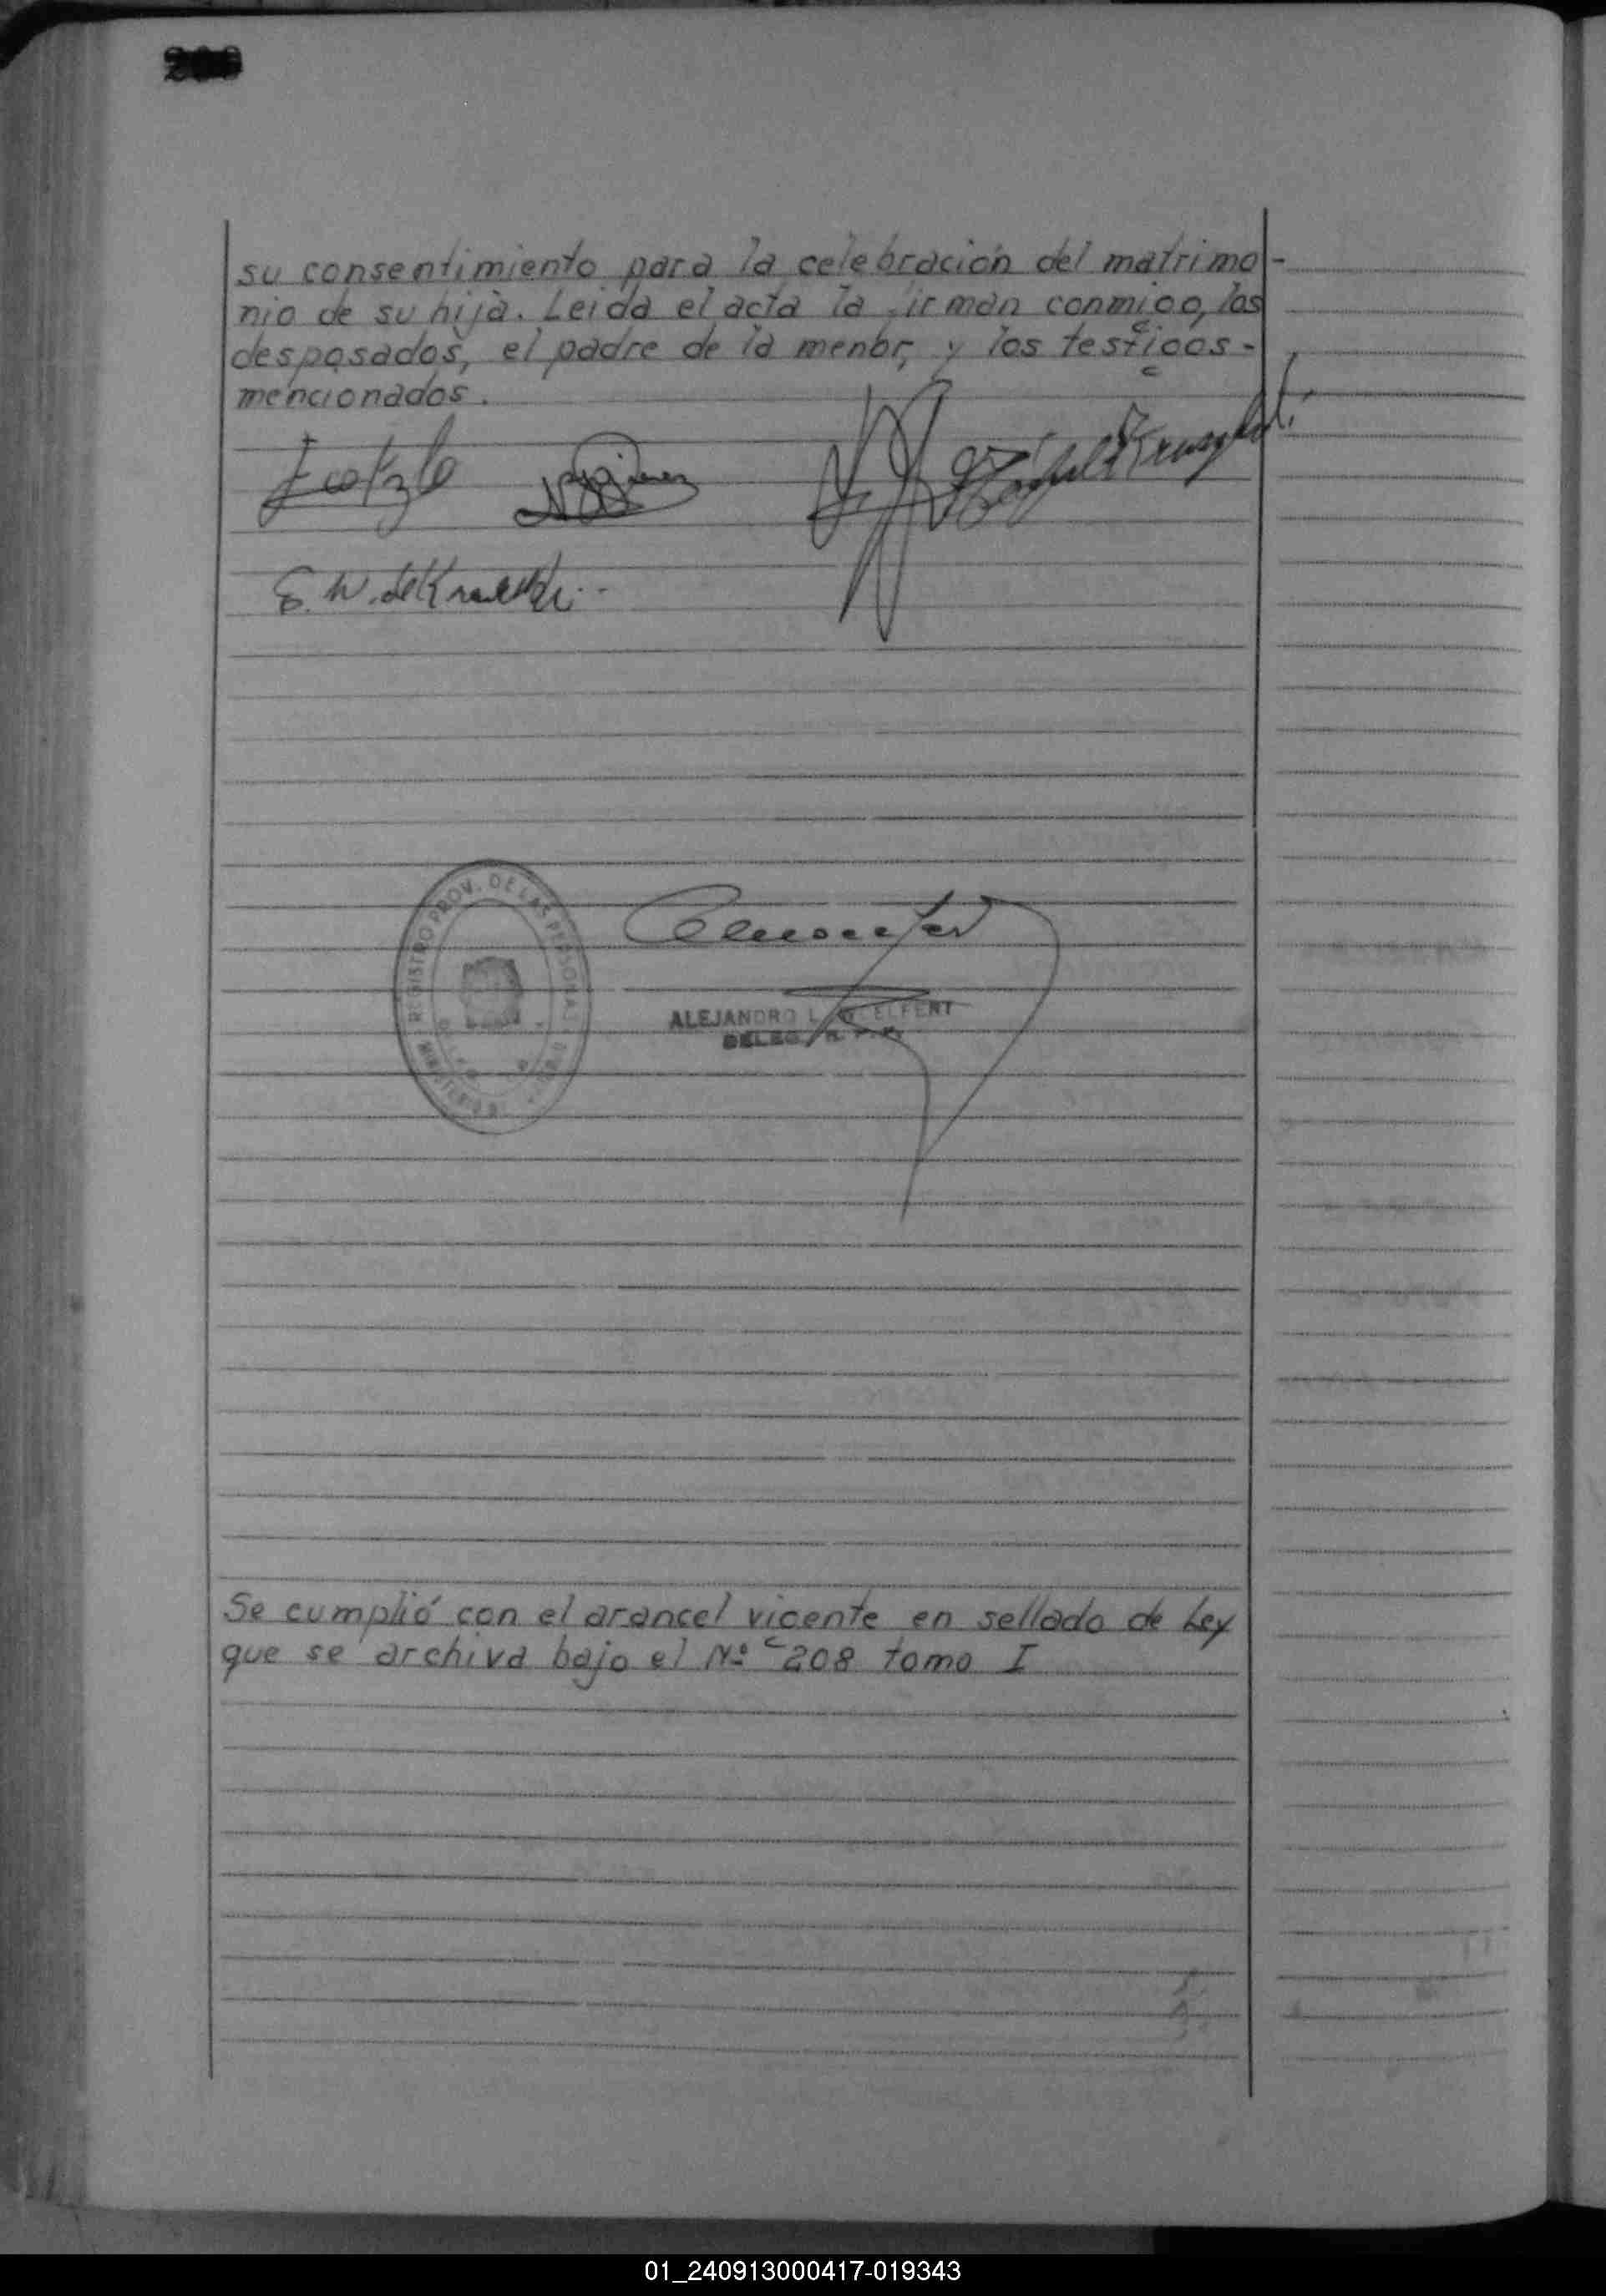 su consentimiento para la celebración del matrimo-
nio de su hija. Leida el acta la firman conmigo, los
desposados, el padre de la menor, y los testigos-
mencionados.
REGISTRO PROV. DE LAS PERSONAS
ALEJANDRO L.
DELEG. R. P. P.
Se cumplió con el arancel vigente en sellado de Ley
que se archiva bajo el Nº 208 tomo I
01_240913000417-019343